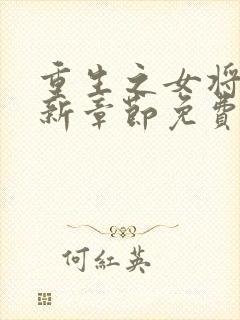 重生之女将
新章節免費
何紅英